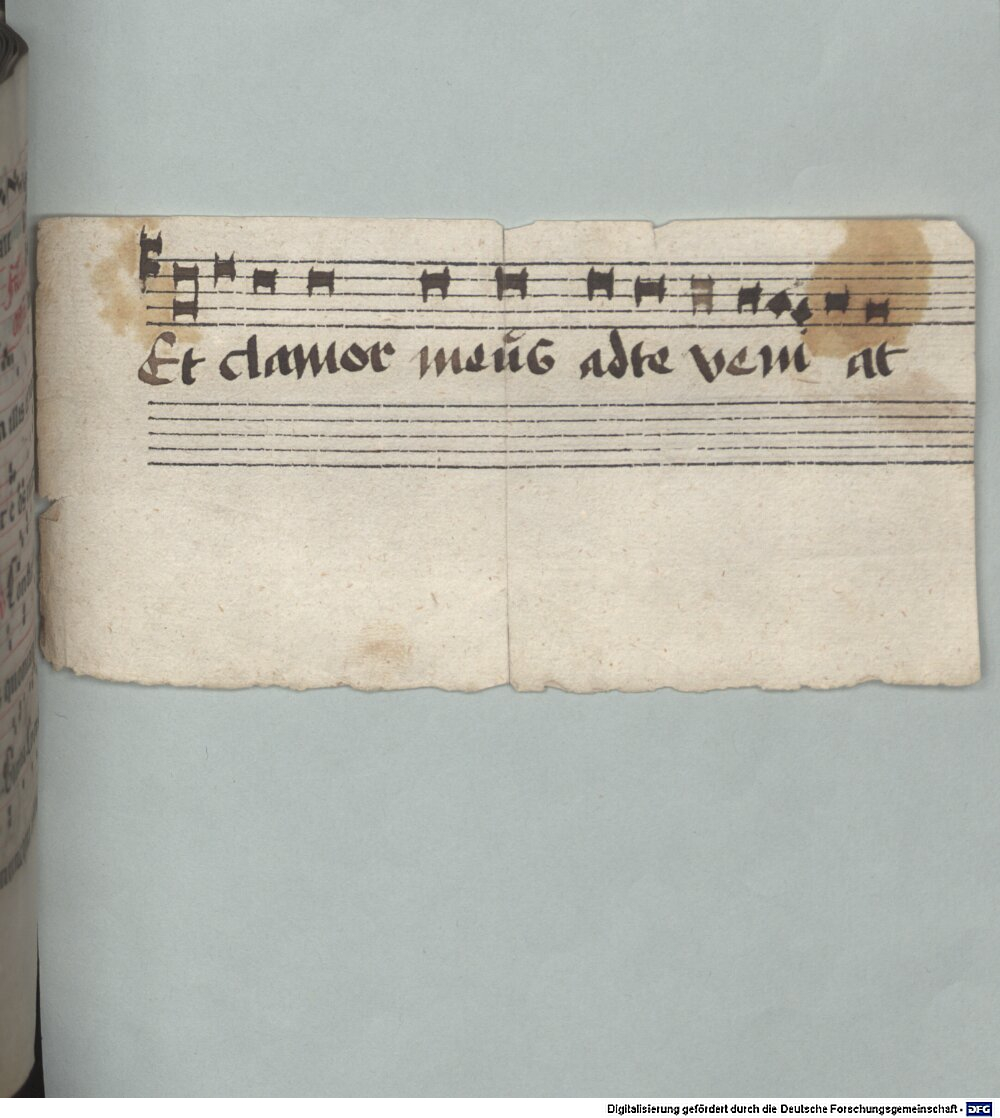 Et clamor meus adte veni at
Digitalisierung gefördert durch die Deutsche Forschungsgemeinschaft - DFG